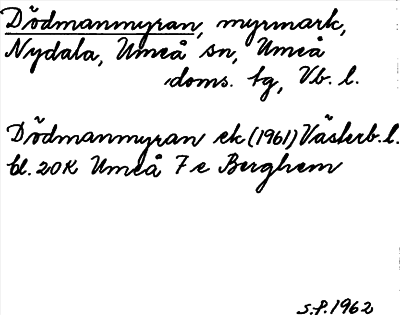 Dödmanmyran, myrmark,
Nydala, Umeå sn, Umeå
doms. tg, Vb. l.
Dödmanmyran ek (1961) Västerb. l.
bl. 20K Umeå 7 e Berghem
s.f. 1962